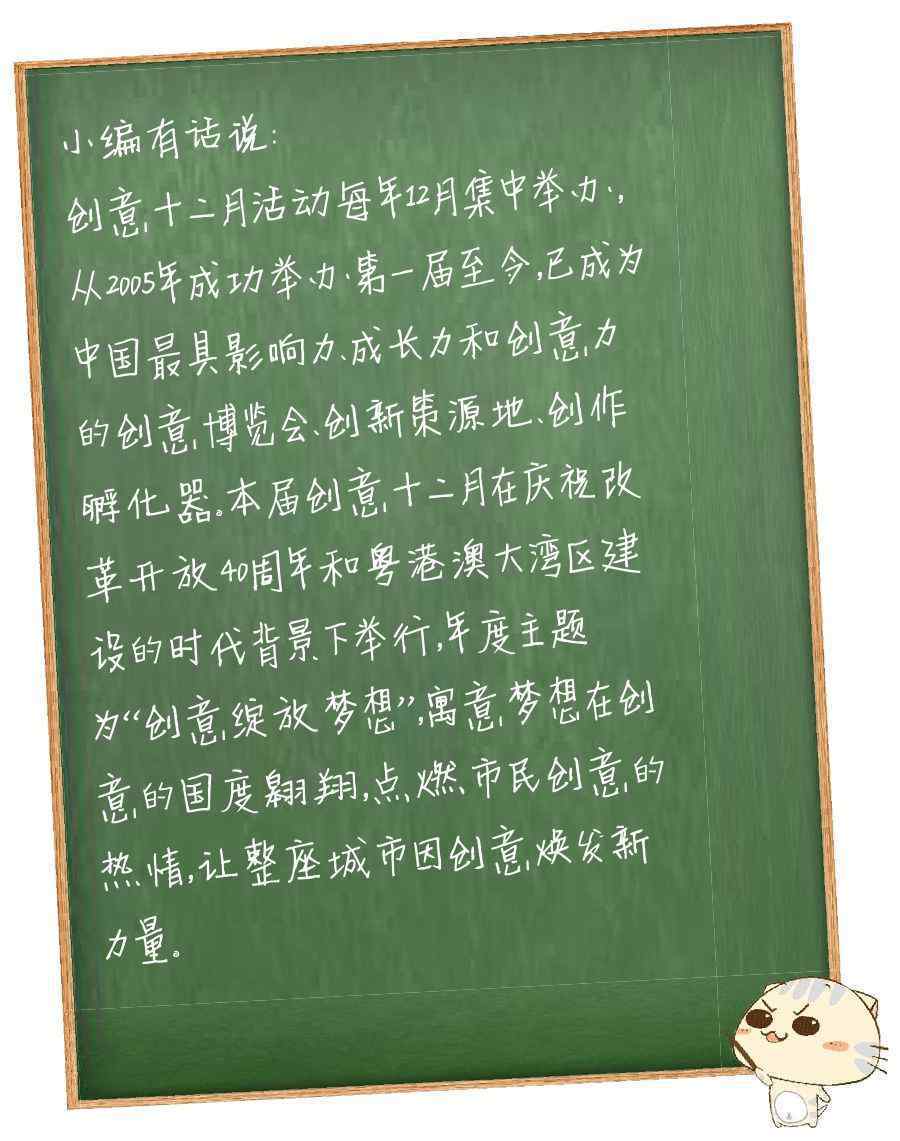 小编有话说:
创意十二月活动每年12月集中举办,
从2005年成功举办第一届至今,已成为
中国最具影响力、成长力和创意力
的创意博览会、创新策源地、创作
孵化器。本届创意十二月在庆祝改
革开放40周年和粤港澳大湾区建
设的时代背景下举行,年度主题
为“创意绽放梦想”,寓意梦想在创
意的国度翱翔,点燃市民创意的
热情,让整座城市因创意焕发新
力量。